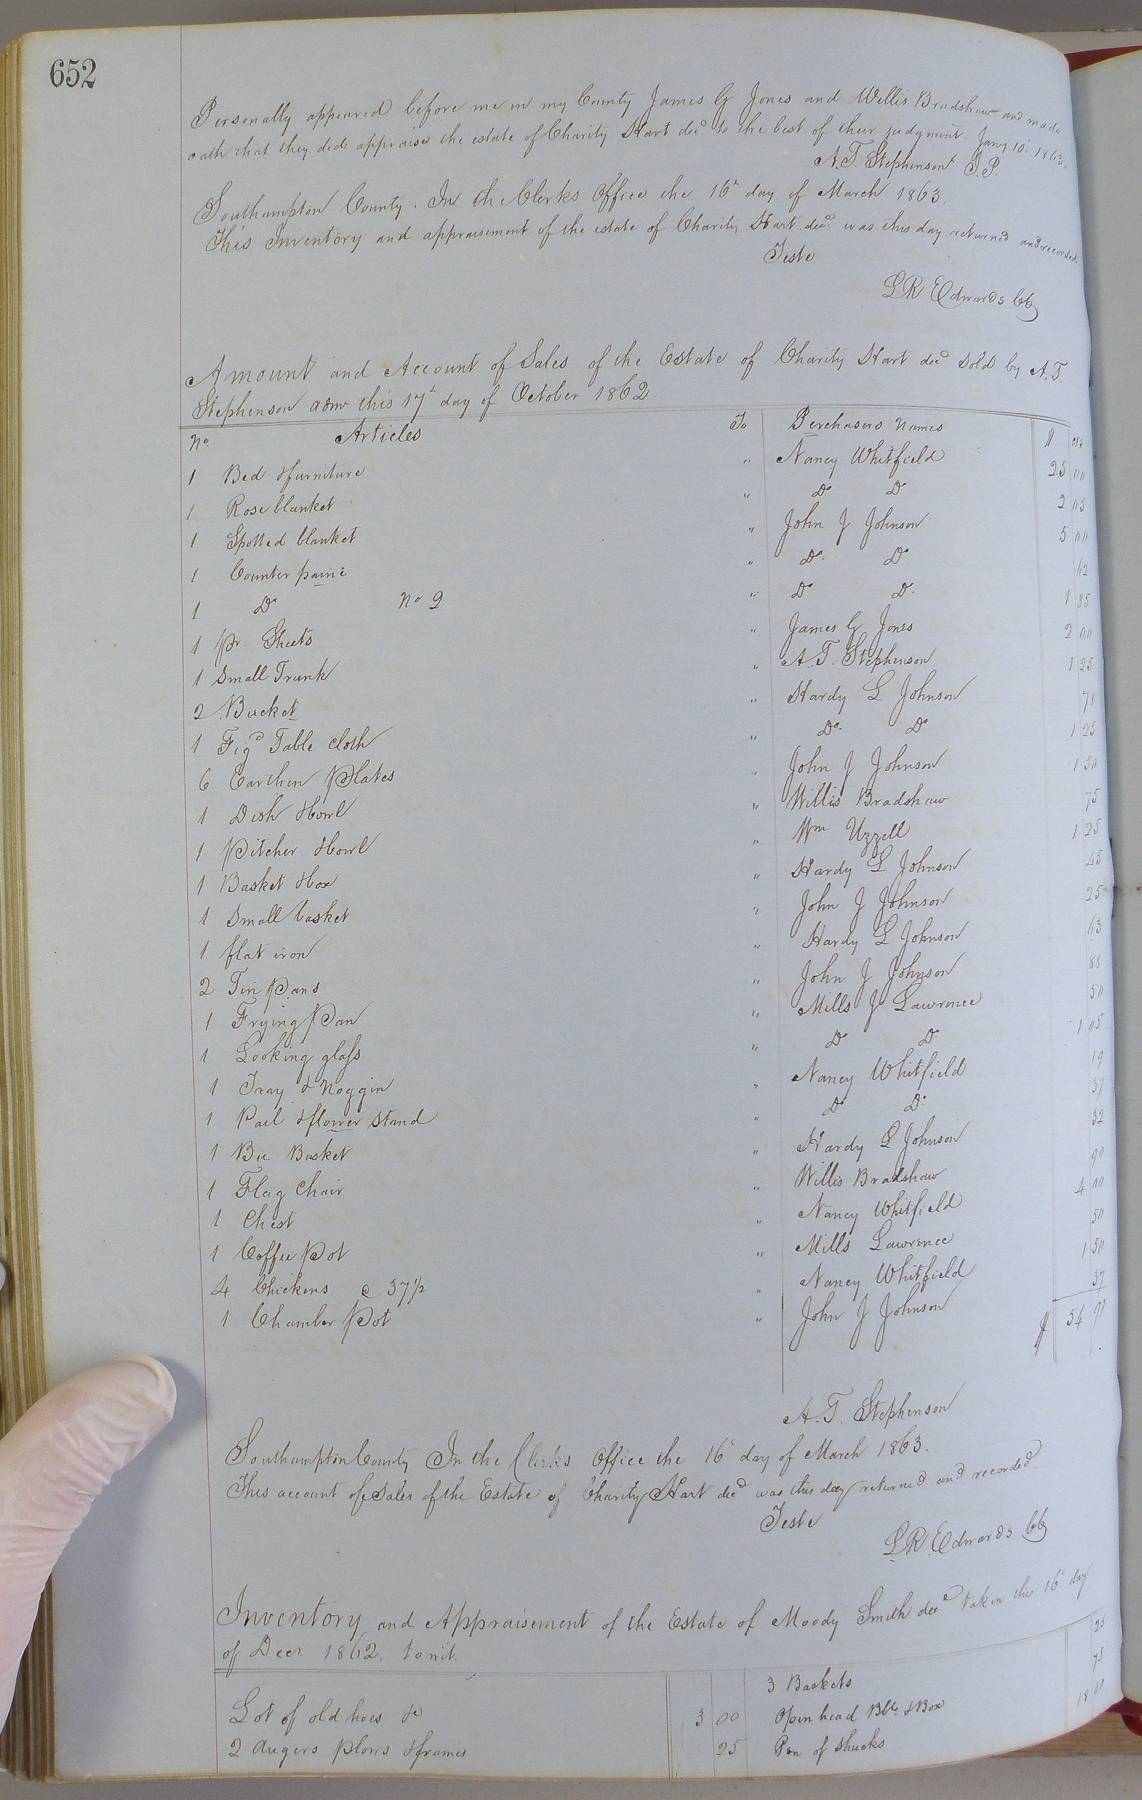 652
Personally appeared before me in my County James G Jones and Willis Bradshaw and made
oath that they did appraise the estate of Charity Hart decd to the best of their judgment. Jany 10th 1863.
A.T. Stephenson J.P.
Southampton County. In the Clerks Office the 16th day of March 1863.
This Inventory and appraisement of the estate of Charity Hart decd was this day returned and recorded.
Teste
L R Edwards CC
Amount and Account of Sales of the Estate of Charity Hart decd sold by A.T.
Stephenson admr this 17th day of October 1862.
No. Articles To Perchasers Names $ cts
1 Bed & furniture " Nancy Whitfield 25 00
1 Rose blanket " Do Do 2 05
1 Spotted blanket " John J Johnson 5 00
1 Counter paine " Do. Do 62
1 Do No 2 " Do Do. 1 85
1 pr. Sheets " James G Jones 2 00
1 Small Trunk " A T. Stephenson 1 25
2 Bucket " Hardy L Johnson 78
1 Figd Table cloth " Do. Do 1 25
6 Earthen Plates " John J Johnson 1 50
1 Dish & bowl " Willis Bradshaw 75
1 Pitcher & bowl " Wm Uzzell 1 25
1 Basket & box " Hardy L Johnson 45
1 Small basket " John J Johnson 25
1 flat iron " Hardy L Johnson 63
2 Tin Pans " John J Johnson 88
1 Frying Pan " Mills J Lawrence 50
1 Looking glass " Do Do 1 05
1 Tray & Noggin " Nancy Whitfield 19
1 Pail & flower stand " Do Do 37
1 Bu Basket " Hardy L Johnson 32
1 Flag Chair " Willis Bradshaw 90
1 Chest " Nancy Whitfield 4 00
1 Coffee Pot " Mills Lawrence 50
4 Chickens @ 37 1/2 " Nancy Whitfield 1 50
1 Chamber Pot " John J Johnson 37
$ 54 91
A.T. Stephenson
Southampton County In the Clerks Office the 16th day of March 1863.
This account of Sales of the Estate of Charity Hart decd was this day returned and recorded.
Teste
L R Edwards CC
Inventory and Appraisement of the Estate of Moody Smith decd taken this 16th day
of Decr 1862. towit.
3 Baskets 25
Lot of old hoes &c 3 00 Open head Bbl. & Box 75
2 Augers plows & frames 25 Pen of Shucks 18 00